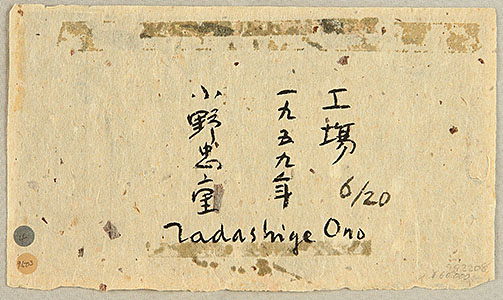 工場
6/20
一九五九年
小野忠重
Tadashige Ono